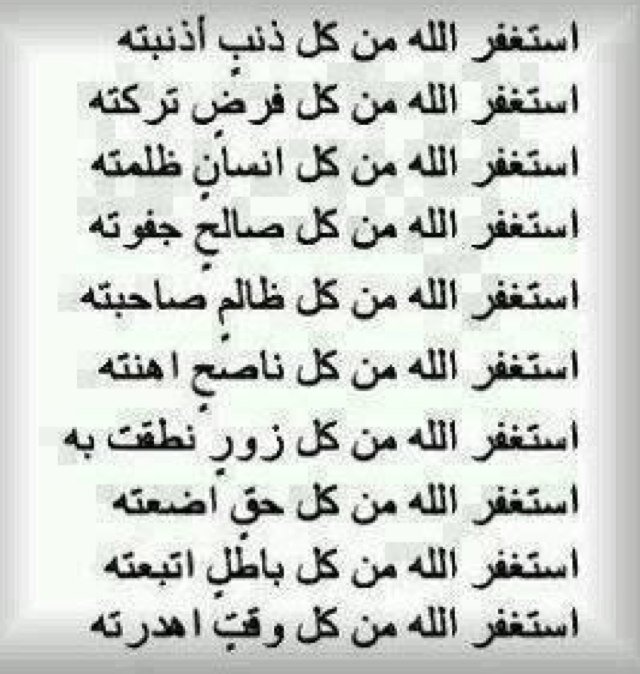 استغفر الله من كل ذنبٍ أذنبته
استغفر الله من كل فرضٍ تركته
استغفر الله من كل انسانٍ ظلمته
استغفر الله من كل صالحٍ جفوته
استغفر الله من كل ظالمٍ صاحبته
استغفر الله من كل ناصحٍ اهنته
استغفر الله من كل زورٍ نطقت به
استغفر الله من كل حقٍ اضعته
استغفر الله من كل باطلٍ اتبعته
استغفر الله من كل وقتٍ اهدرته